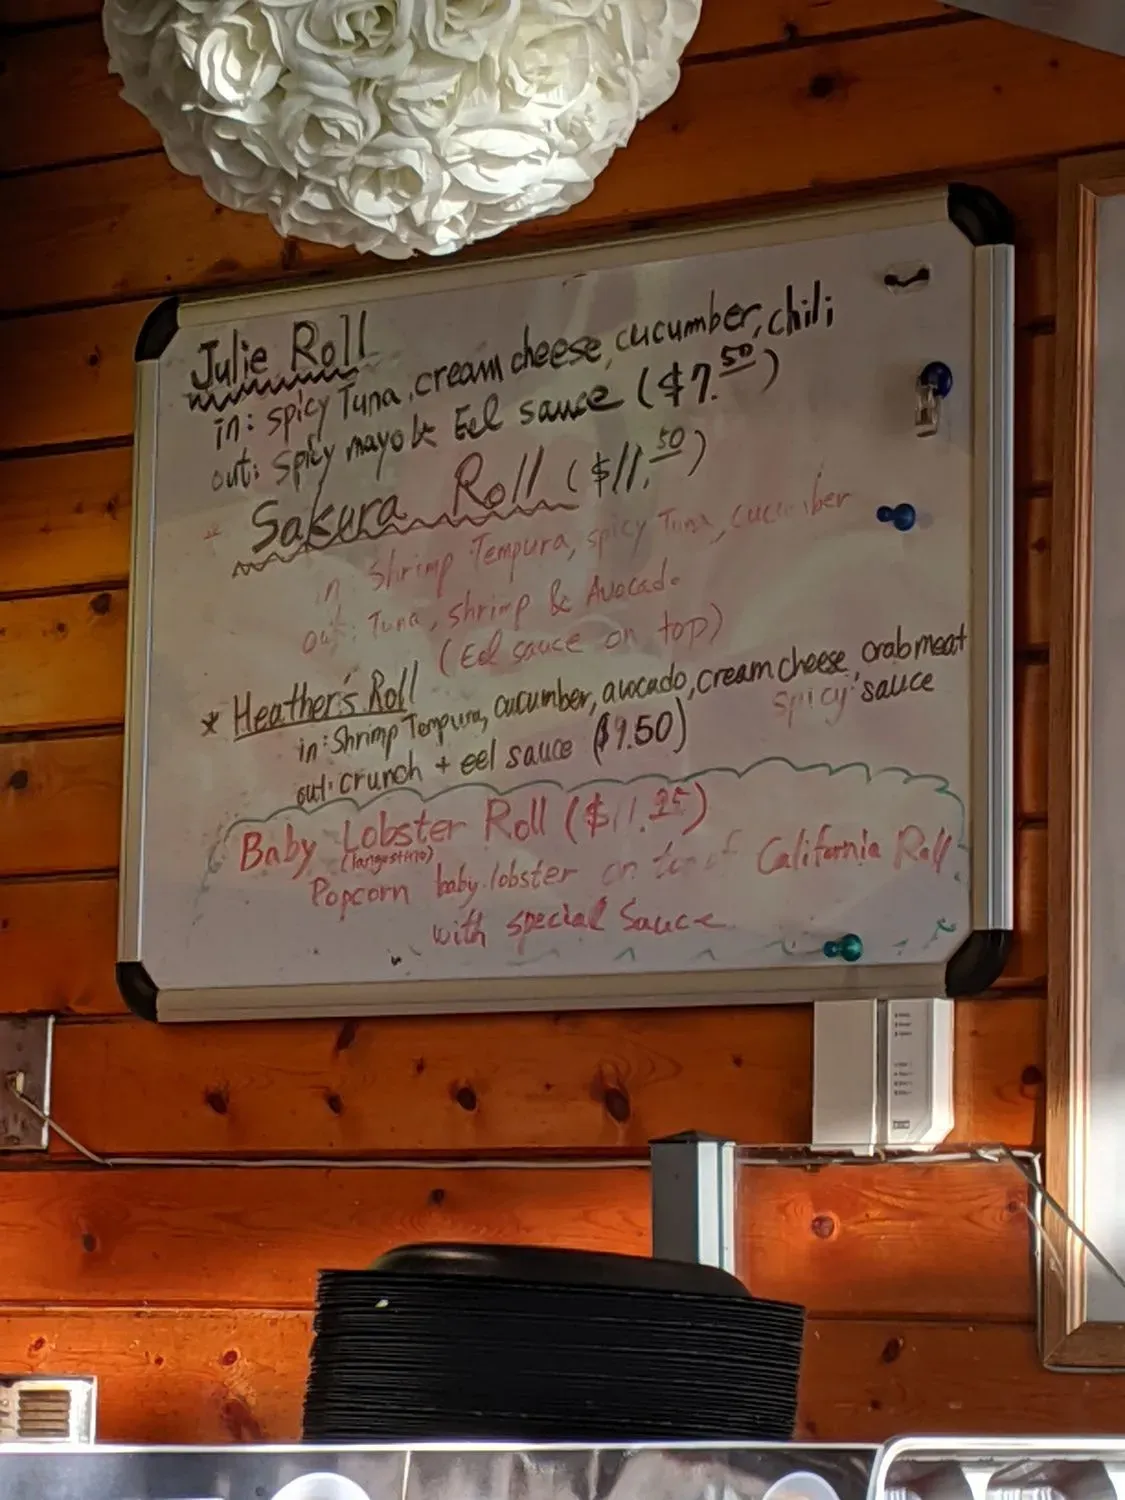 Julie Roll
in: spicy Tuna, cream cheese, cucumber, chili
out: spicy mayo & Eel sauce ($7.50)
Sakura Roll ($11.50)
* in: Shrimp Tempura, spicy Tuna, cucumber
out: Tuna, shrimp & Avocado
(Eel sauce on top)
* Heather's Roll
in: Shrimp Tempura, cucumber, avocado, cream cheese crabmeat
spicy sauce
out: crunch + eel sauce ($9.50)
Baby Lobster Roll ($11.95)
(langostino)
Popcorn baby lobster on top of California Roll
with special Sauce